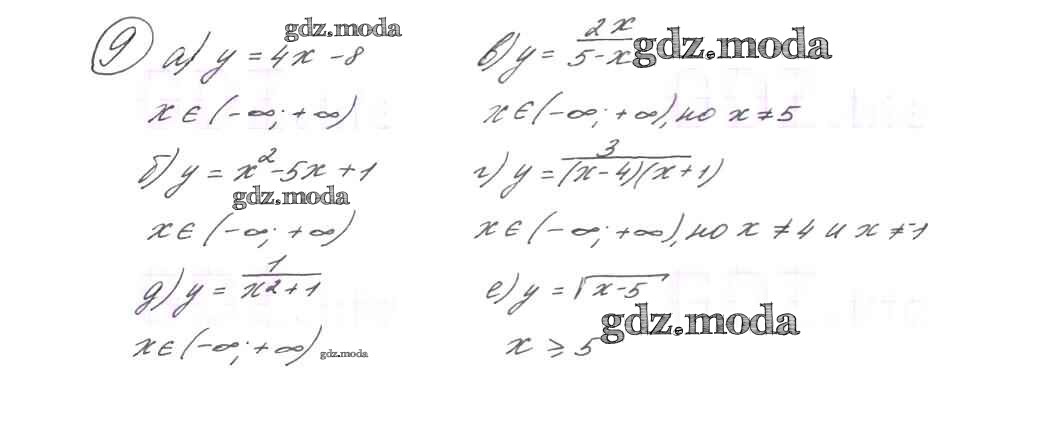 9 а) y = 4x - 8
x ∈ (-∞; +∞)
б) y = x² - 5x + 1
x ∈ (-∞; +∞)
д) y = 1/(x² + 1)
x ∈ (-∞; +∞)
в) y = 2x/(5 - x)
x ∈ (-∞; +∞), но x ≠ 5
г) y = 3/((x - 4)(x + 1))
x ∈ (-∞; +∞), но x ≠ 4 и x ≠ -1
е) y = √(x - 5)
x ≥ 5
gdz.moda
gdz.moda
gdz.moda
gdz.moda
gdz.moda